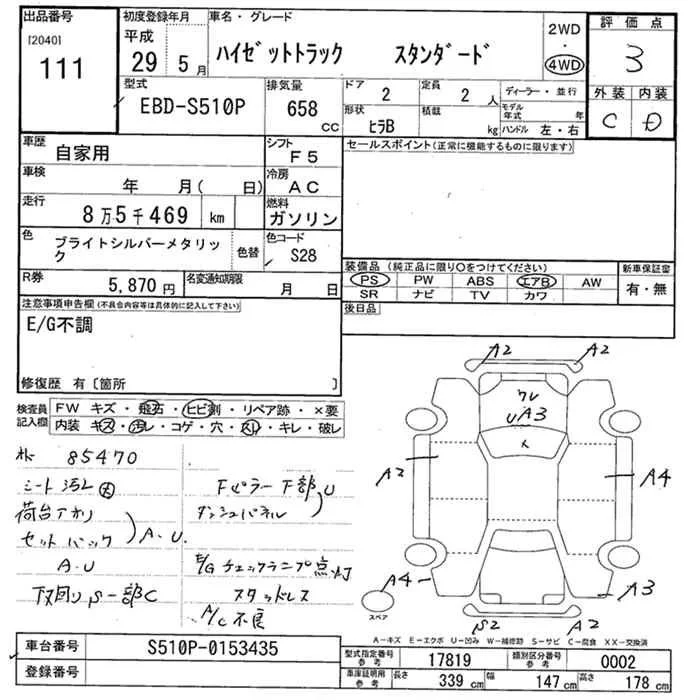 出品番号
[2040]
111
初度登録年月
平成
29 5 月
車名・グレード
ハイゼットトラック スタンダード
2WD
・
4WD
評価点
3
型式
EBD-S510P
排気量
658
cc
ドア
2
定員
2 人
形状
ヒラB
積載
kg
ディーラー・並行
モデル年式 年
ハンドル 左・右
外装 内装
C D
車歴
自家用
シフト
F5
車検
年 月( 日)
冷房
AC
走行
8万5千469 km
燃料
ガソリン
色
ブライトシルバーメタリック
色替
色コード
S28
R券
5,870円
名変通知期限
月 日
セールスポイント(正常に機能するものに限ります)
装備品(純正品に限り○をつけてください)
PS PW ABS エアB AW
SR ナビ TV カワ
新車保証書
有・無
後日品
注意事項申告欄(不具合内容等は具体的に記入して下さい)
E/G不調
修復歴 有〔箇所 〕
検査員記入欄
FW キズ・飛石・ヒビ割・リペア跡・×要
内装 キズ・汚レ・コゲ・穴・スレ・キレ・破レ
85470
シート汚レ大
荷台アオリ
セットバック
A・U
A・U
下回りS一部C
Fピラー下部U
ダッシュパネル
E/Gチェックランプ点灯
スタッドレス
A/C不良
A2 A2
ワレ
UA3
A2
A4
A4
A3
S2 A2
スペア
A−キズ E−エクボ U−凹み W−補修跡 S−サビ C−腐食 XX−交換済
車台番号
S510P-0153435
登録番号
型式指定番号
参考
17819
類別区分番号
参考
0002
車庫証明用
参考
長さ
339 cm
幅
147 cm
高さ
178 cm